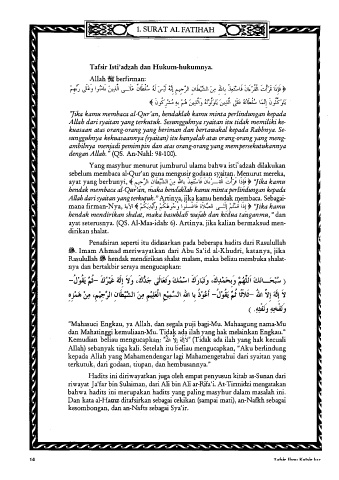 1. SURAT AL FATIHAH
Tafsir Isti'adzah dan Hukum-hukumnya.
Allah ﷻ berfirman:
﴿ فَإِذَا قَرَأْتَ الْقُرْءَانَ فَاسْتَعِذْ بِاللهِ مِنَ الشَّيْطَانِ الرَّجِيمِ إِنَّهُ لَيْسَ لَهُ سُلْطَانٌ عَلَى الَّذِينَ ءَامَنُوا وَعَلَى رَبِّهِمْ
يَتَوَكَّلُونَ إِنَّمَا سُلْطَانُهُ عَلَى الَّذِينَ يَتَوَلَّوْنَهُ وَالَّذِينَ هُم بِهِ مُشْرِكُونَ ﴾
"Jika kamu membaca al-Qur'an, hendaklah kamu minta perlindungan kepada
Allah dari syaitan yang terkutuk. Sesungguhnya syaitan itu tidak memiliki ke-
kuasaan atas orang-orang yang beriman dan bertawakal kepada Rabbnya. Se-
sungguhnya kekuasaannya (syaitan) itu hanyalah atas orang-orang yang meng-
ambilnya menjadi pemimpin dan atas orang-orang yang mempersekutukannya
dengan Allah." (QS. An-Nahl: 98-100).
Yang masyhur menurut jumhurul ulama bahwa isti'adzah dilakukan
sebelum membaca al-Qur'an guna mengusir godaan syaitan. Menurut mereka,
ayat yang berbunyi, ﴿ فَإِذَا قَرَأْتَ الْقُرْءَانَ فَاسْتَعِذْ بِاللهِ مِنَ الشَّيْطَانِ الرَّجِيمِ ﴾ "Jika kamu
hendak membaca al-Qur'an, maka hendaklah kamu minta perlindungan kepada
Allah dari syaitan yang terkutuk." Artinya, jika kamu hendak membaca. Sebagai-
mana firman-Nya, ﴿ إِذَا قُمْتُمْ إِلَى الصَّلَاةِ فَاغْسِلُوا وُجُوهَكُمْ وَأَيْدِيَكُمْ ﴾ الآية "Jika kamu
hendak mendirikan shalat, maka basuhlah wajah dan kedua tanganmu," dan
ayat seterusnya. (QS. Al-Maa-idah: 6). Artinya, jika kalian bermaksud men-
dirikan shalat.
Penafsiran seperti itu didasarkan pada beberapa hadits dari Rasulullah
ﷺ. Imam Ahmad meriwayatkan dari Abu Sa'id al-Khudri, katanya, jika
Rasulullah ﷺ hendak mendirikan shalat malam, maka beliau membuka shalat-
nya dan bertakbir seraya mengucapkan:
( سُبْحَانَكَ اللَّهُمَّ وَبِحَمْدِكَ، وَتَبَارَكَ اسْمُكَ وَتَعَالَى جَدُّكَ، وَلَا إِلَهَ غَيْرُكَ –ثُمَّ يَقُولُ–
لَا إِلَهَ إِلَّا اللهُ –ثَلَاثًا ثُمَّ يَقُولُ– أَعُوذُ بِاللهِ السَّمِيعِ الْعَلِيمِ مِنَ الشَّيْطَانِ الرَّجِيمِ، مِنْ هَمْزِهِ
وَنَفْخِهِ وَنَفْثِهِ. )
"Mahasuci Engkau, ya Allah, dan segala puji bagi-Mu. Mahaagung nama-Mu
dan Mahatinggi kemuliaan-Mu. Tidak ada ilah yang hak melainkan Engkau."
Kemudian beliau mengucapkan: "لَا إِلَهَ إِلَّا اللهُ" (Tidak ada ilah yang hak kecuali
Allah) sebanyak tiga kali. Setelah itu beliau mengucapkan, "Aku berlindung
kepada Allah yang Mahamendengar lagi Mahamengetahui dari syaitan yang
terkutuk, dari godaan, tiupan, dan hembusannya."
Hadits ini diriwayatkan juga oleh empat penyusun kitab as-Sunan dari
riwayat Ja'far bin Sulaiman, dari Ali bin Ali ar-Rifa'i. At-Tirmidzi mengatakan
bahwa hadits ini merupakan hadits yang paling masyhur dalam masalah ini.
Dan kata al-Hamz ditafsirkan sebagai cekikan (sampai mati), an-Nafkh sebagai
kesombongan, dan an-Nafts sebagai Sya'ir.
14
Tafsir Ibnu Katsir Juz